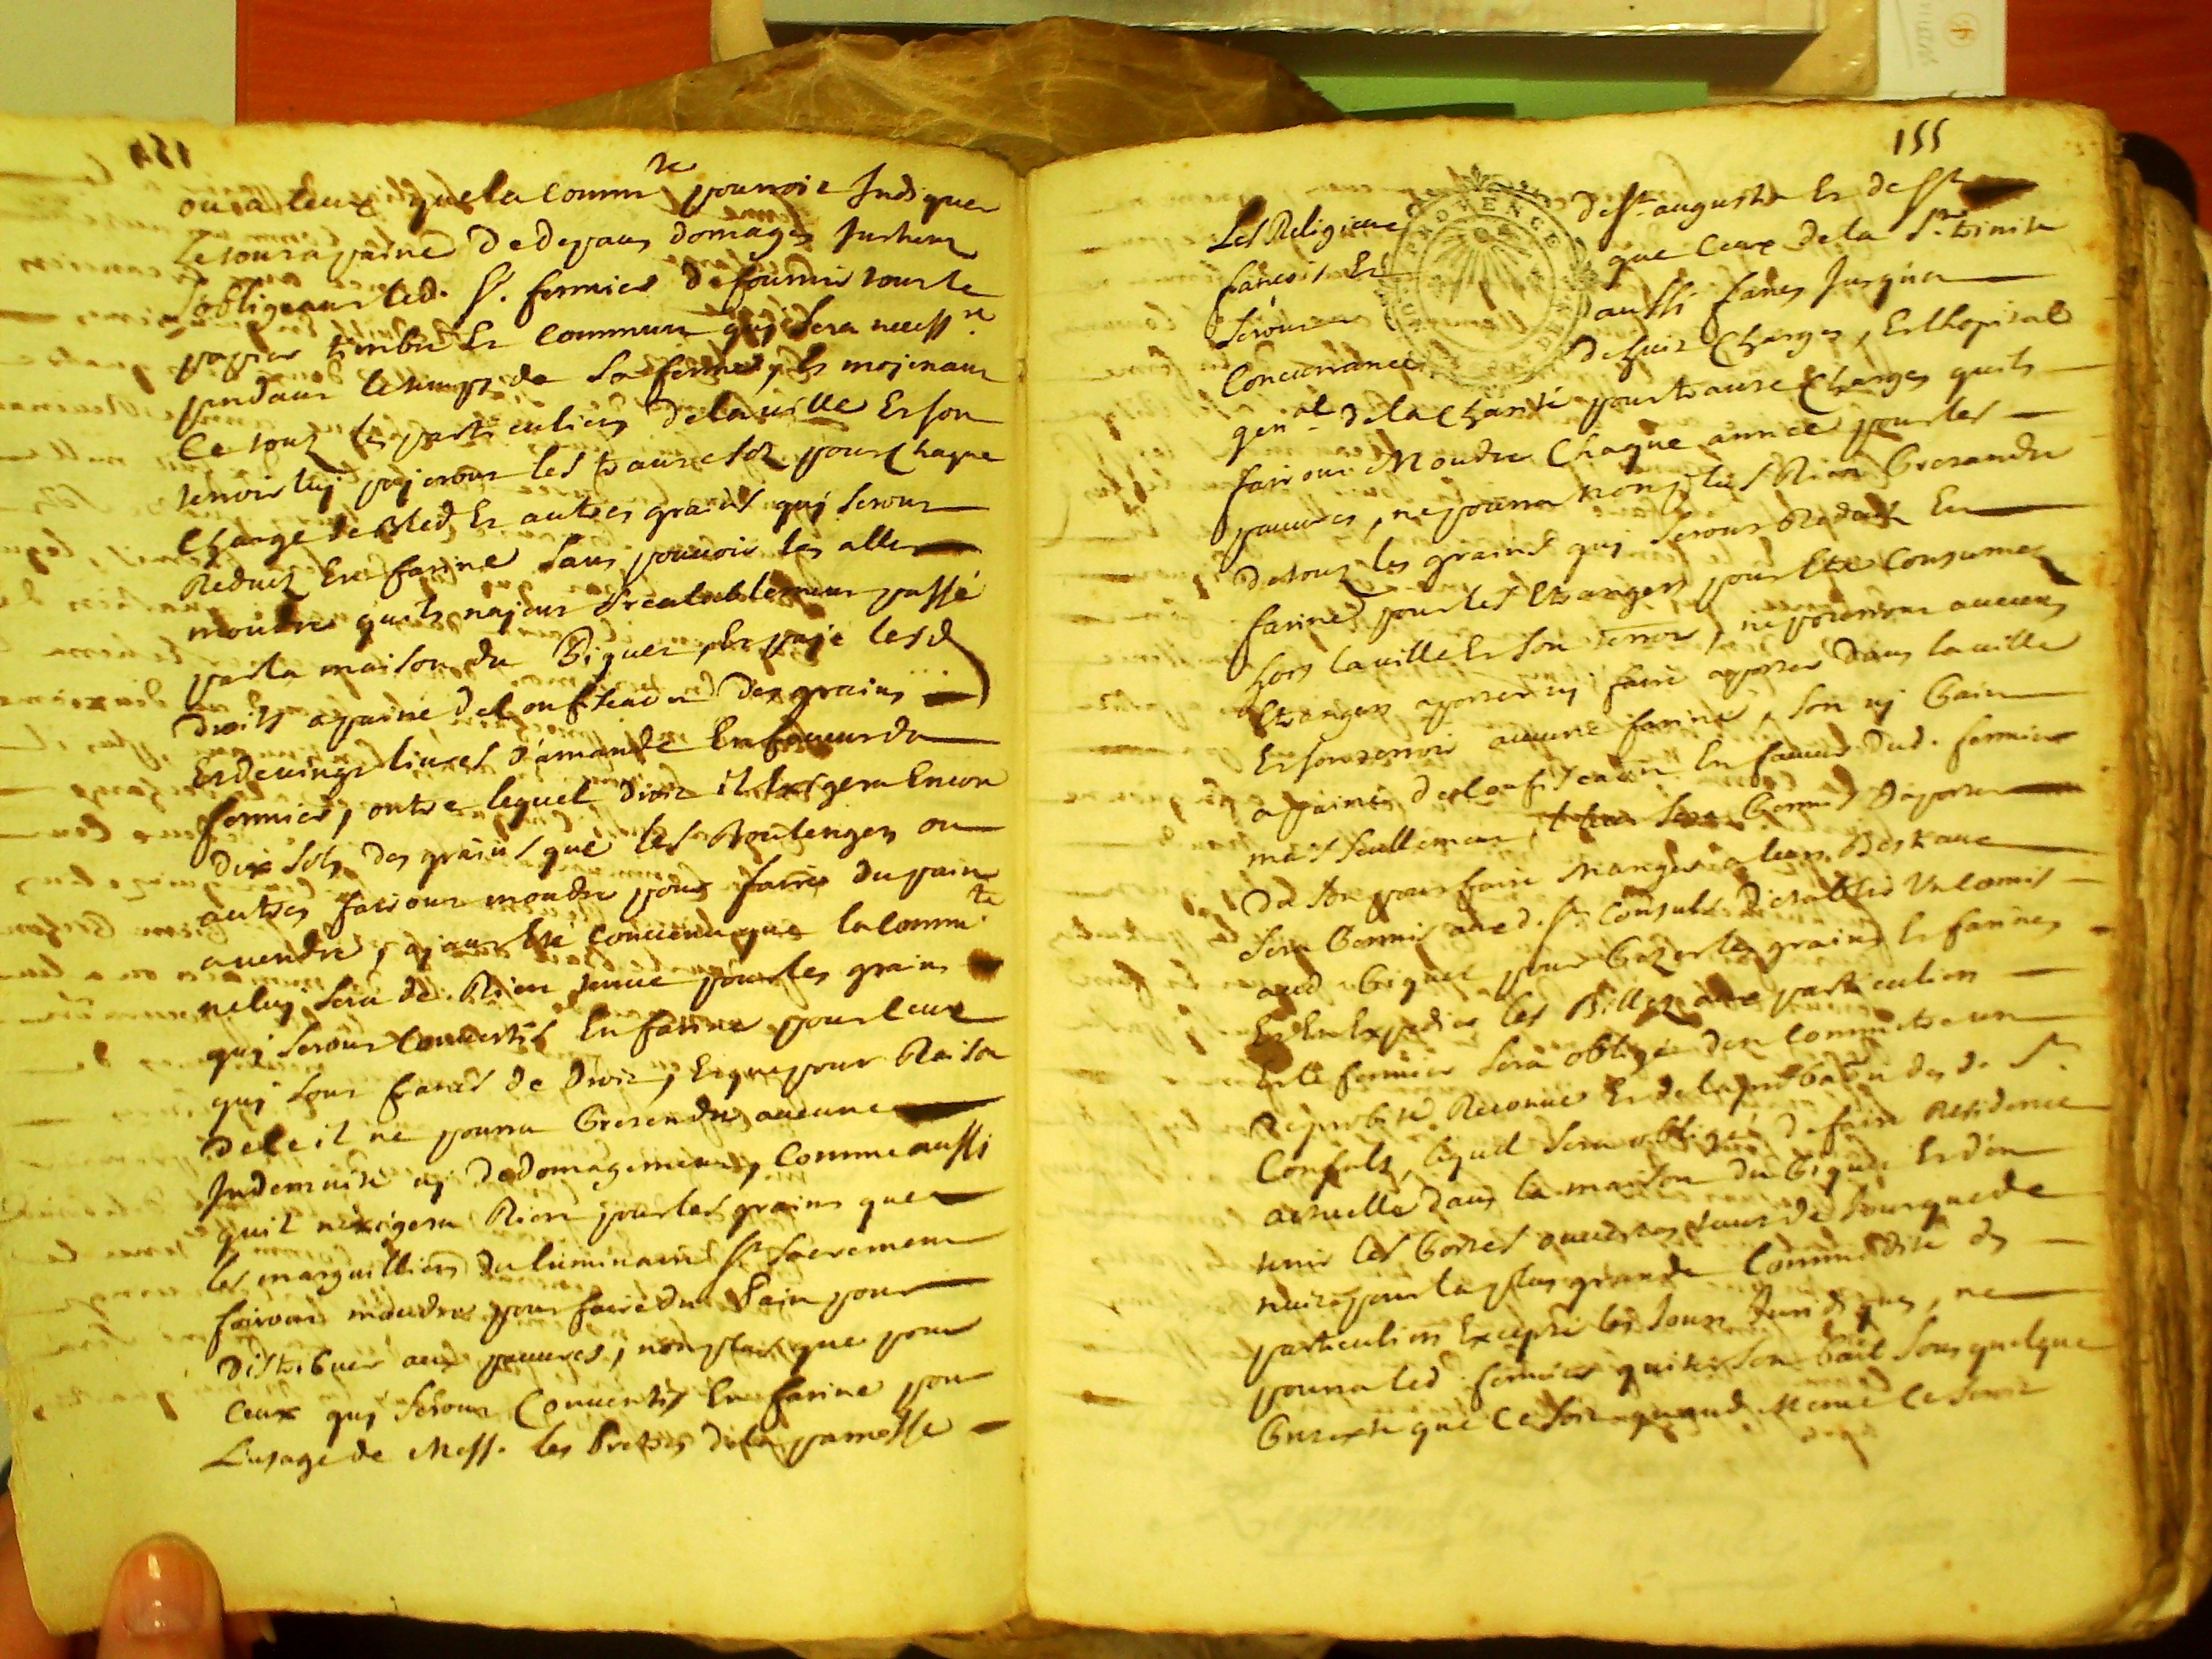 154
ou a ceux que la commte pourroit Indiquer
Le tout a paine de depans domages Inthers
sobligeant led. Sr. fermier de fournir tout le
papier timbré Et commun quj sera necessre
pandant le temps de sa ferme, Et mojenant
Ce touz les particuliers de la ville Et son
terroir luj pajeront les trante solz pour Chaque
Charge de Bled Et autres grains quj seront
Reduiz En farine sans pouvoir les aller
moudre quils najent Prealablement passé
par la maison du Piquet, Et pajé lesd
droits a paine de confiscaon des grains
Et de vingt livres d'amande En faveur du
fermier, outre lequel droit il Exigera Encor
dix solz des grains que les Boulengers ou
autres fairont moudre pour faire du pain
a vendre, ajant Eté convenu que la Commte
ne luj sera de Rien tenue pour les grains
quj seront Convertis En farine pour ceux
quj sont francs de droit, Et que pour Raison
de ce il ne pourra Pretendre aucune
Indemnité nj dedomagement, Comme aussi
quil nexigera Rien pour les grains que
les marguilliers du luminaire St Sacrement
fairont moudre pour faire du Pain pour
distribuer aux pauvres, non plus que pour
Ceux quj seront Convertis En farine pour
L'usage de Messs. les Pretres de la parroisse
155
PROVENCE
Les Religieux de St augustin Et de St
francois Et que Ceux de la Ste trinité
seront aussi francs Jusqua
Concurrance de huit Charges, Et lhopital
genal de la Charité pour trante Charges quils
fairont Moudre Chaque année pour les
pauvres, ne pourra non plus Rien Pretandre
de touz les grains quj seront Reduits En
farine pour les Etrangers pour Etre Consumez
hors la ville Et son terroir, ne pourront aucuns
Etrangers aporter nj faire aporter dans la ville
Et son terroir aucune farine, son nj Pain
a paine de Confiscaon En faveur dud. fermier
mais seullement sera Permis d'aporter
du son pour faire Manger a leurs Bestaux
sera Permis auxd. Srs Consuls d'etablir Un Comis
aud Piquet pour Pezer les grains Et farines
Et En Expedier les Billez aux particuliers
Et le fermier sera obligé den Commetre un
de probité Reconnue Et de laprobaon desd. Srs
Consuls, lequel sera obligé de faire Residence
actuelle dans la maison du Piquet Et den
tenir les Portes ouvertes tant de Jour que de
nuit pour la plus grande Commodité des
particuliers Excepté les Jours Juridiques, ne
pourra led. fermier quiter son bail sous quelque
Pretexte que Ce soit quand Meme Ce seroit